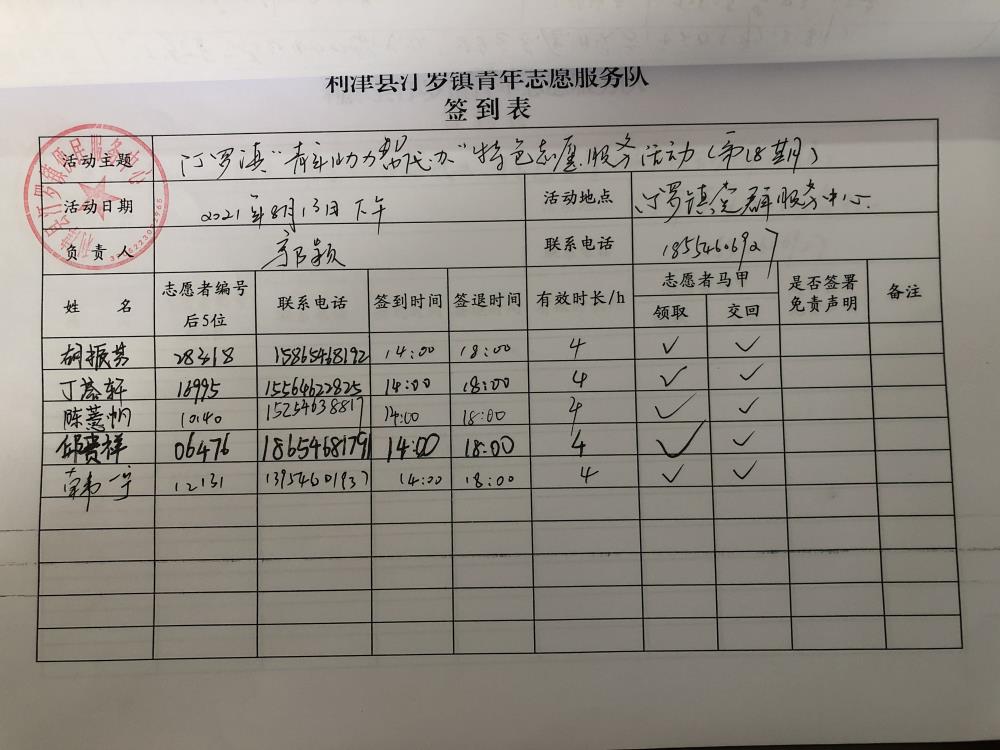 利津县汀罗镇青年志愿服务队
签到表
活动主题 汀罗镇“青年助力帮代办”特色志愿服务活动(第18期)
活动日期 2021年8月13日下午 活动地点 汀罗镇党群服务中心
负责人 郭颖 联系电话 18554606927
姓名 志愿者编号后5位 联系电话 签到时间 签退时间 有效时长/h 志愿者马甲 领取 交回 是否签署免责声明 备注
胡振芳 28318 15865468192 14:00 18:00 4 ✓ ✓
丁慕轩 16995 15564622825 14:00 18:00 4 ✓ ✓
陈薏帆 10140 15254638817 14:00 18:00 4 ✓ ✓
邱贵祥 06476 18654681791 14:00 18:00 4 ✓ ✓
12131 13954601937 14:00 18:00 4 ✓ ✓